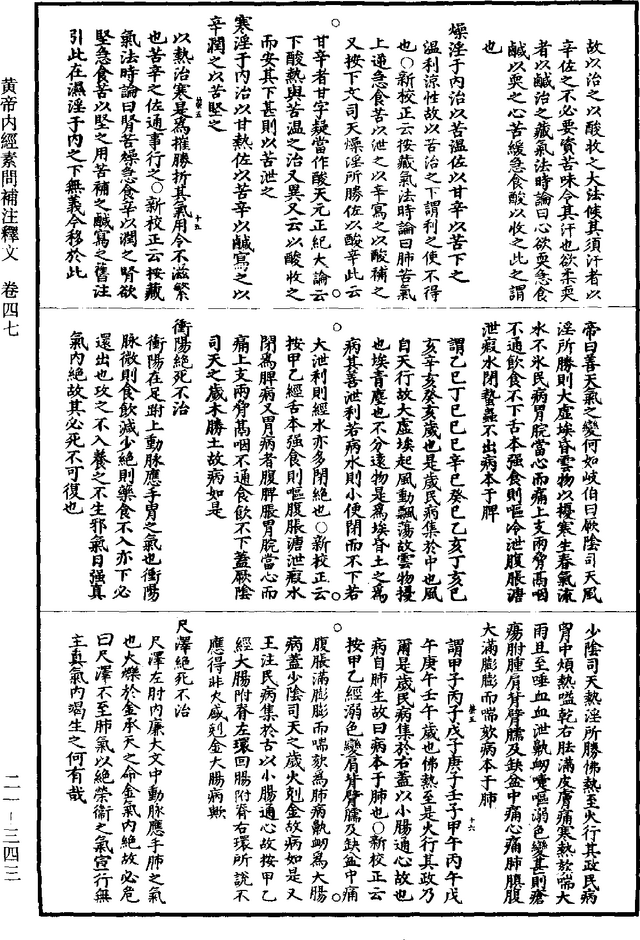 故以治之以酸收之大法候其須汗者以
辛佐之不必要資苦味令其汗也欲柔耎
者以鹹治之藏氣法時論曰心欲耎急食
鹹以耎之心苦緩急食酸以收之此之謂
也
燥淫于內治以苦溫佐以甘辛以苦下之
溫利涼性故以苦治之下謂利之使不得
也○新校正云按藏氣法時論曰肺苦氣
上逆急食苦以泄之以辛寫之以酸補之
又按下文司天燥淫所勝佐以酸辛此云
甘辛者甘字疑當作酸天元正紀大論云
下酸熱與苦溫之治又異又云以酸收之
而安其下甚則以苦泄之
寒淫于內治以甘熱佐以苦辛以鹹寫之以
辛潤之以苦堅之
以熱治寒是爲摧勝折其氣用令不滋繁
也苦辛之佐通事行之○新校正云按藏
氣法時論曰腎苦燥急食辛以潤之腎欲
堅急食苦以堅之用苦補之鹹寫之舊注
引此在濕淫于內之下無義今移於此
黄帝內經素問補注釋文 卷四七
帝曰善天氣之變何如岐伯曰厥陰司天風
淫所勝則大虛埃昏雲物以擾寒生春氣流
水不氷民病胃脘當心而痛上支兩脅鬲咽
不通飲食不下舌本強食則嘔冷泄腹脹溏
泄瘕水閉蟄蟲不出病本于脾
謂乙巳丁巳己巳辛巳癸巳乙亥丁亥己
亥辛亥癸亥歲也是歲民病集於中也風
自天行故大虛埃起風動飄蕩故雲物擾
也埃青塵也不分遠物是爲埃昏土之爲
病其善泄利若病水則小便閉而不下若
大泄利則經水亦多閉絶也○新校正云
按甲乙經舌本強食則嘔腹脹溏泄瘕水
閉爲脾病又胃病者腹脾脹胃脘當心而
痛上支兩脅鬲咽不通食飲不下蓋厥陰
司天之歲木勝土故病如是
衝陽絶死不治
衝陽在足跗上動脉應手胃之氣也衝陽
脉微則食飲減少絶則藥食不入亦下必
還出也攻之不入養之不生邪氣日強真
氣內絶故其必死不可復也
少陰司天熱淫所勝怫熱至火行其政民病
胷中煩熱嗌乾右胠滿皮膚痛寒熱欬喘大
雨且至唾血血泄鼽衂嚏嘔溺色變甚則瘡
瘍胕腫肩背臂臑及缺盆中痛心痛肺䐜腹
大滿膨膨而喘欬病本于肺
謂甲子丙子戊子庚子壬子甲午丙午戊
午庚午壬午歲也怫熱至是火行其政乃
爾是歲民病集於右蓋以小腸通心故也
病自肺生故曰病本于肺也○新校正云
按甲乙經溺色變肩背臂臑及缺盆中痛
腹脹滿膨膨而喘欬爲肺病鼽衂爲大腸
病蓋少陰司天之歲火剋金故病如是又
王注民病集於右以小腸通心故按甲乙
經大腸附脊左環回腸附脊右環所說不
應得非火盛剋金大腸病歟
尺澤絶死不治
尺澤左肘內廉大文中動脉應手肺之氣
也火爍於金承天之命金氣內絶故必危
曰尺澤不至肺氣以絶榮衛之氣宣行無
主真氣內竭生之何有哉
二一－三四三